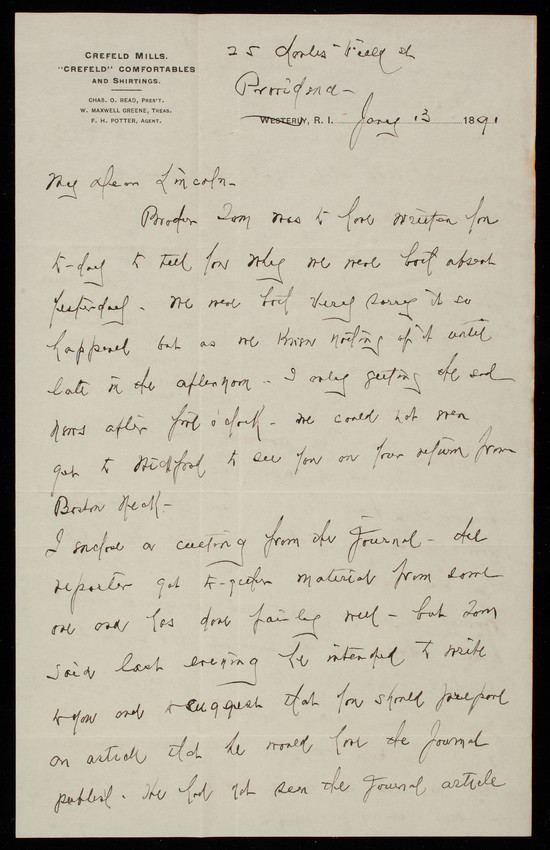 CREFELD MILLS.
"CREFELD" COMFORTABLES
AND SHIRTINGS.
CHAS. O. READ, PRES'T.
W. MAXWELL GREENE, TREAS.
F. H. POTTER, AGENT.
25 Charles Field St
Providence
WESTERLY, R. I. Jany 13 1891
My dear Lincoln—
Brother Tom was to have written you
to-day to tell you why we were both absent
yesterday. We were both very sorry it so
happened but as we knew nothing of it until
late in the afternoon — I only getting the sad
news after five o'clock — we could not even
get to Wickford to see you on your return from
Boston Neck —
I enclose a cutting from the Journal — the
reporter got together material from some
one and has done fairly well — but Tom
said last evening he intended to write
to you and to suggest that you should prepare
an article that he would have the Journal
publish. He had not seen the Journal article